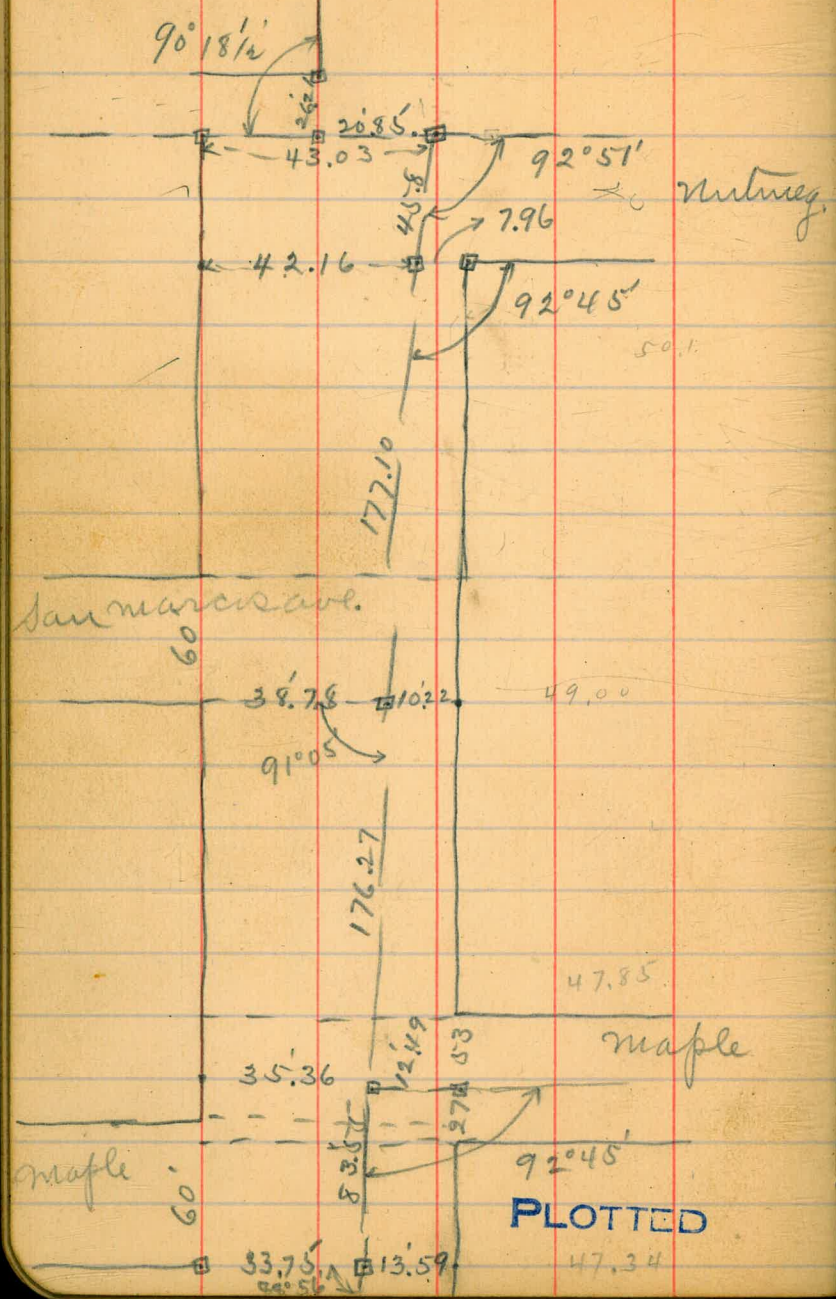 90° 18½'
26.26
20.85'
43.03
92° 51'
45.8
Nutmeg.
7.96
42.16
92° 45'
50.1
177.10
San marcos ave.
60
38.78 10.22
49.00
91° 05'
176.27
47.85
12.49
53
maple
35.36
27
83.55
92° 45'
maple
60'
PLOTTED
33.75 13.59
47.34